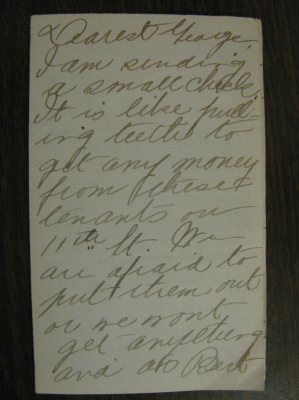 Dearest George,
I am sending
a small check.
It is like pull-
ing teeth to
get any money
from these
tenants on
11th St. We
are afraid to
put them out
or we wont
get anything
and as Bart